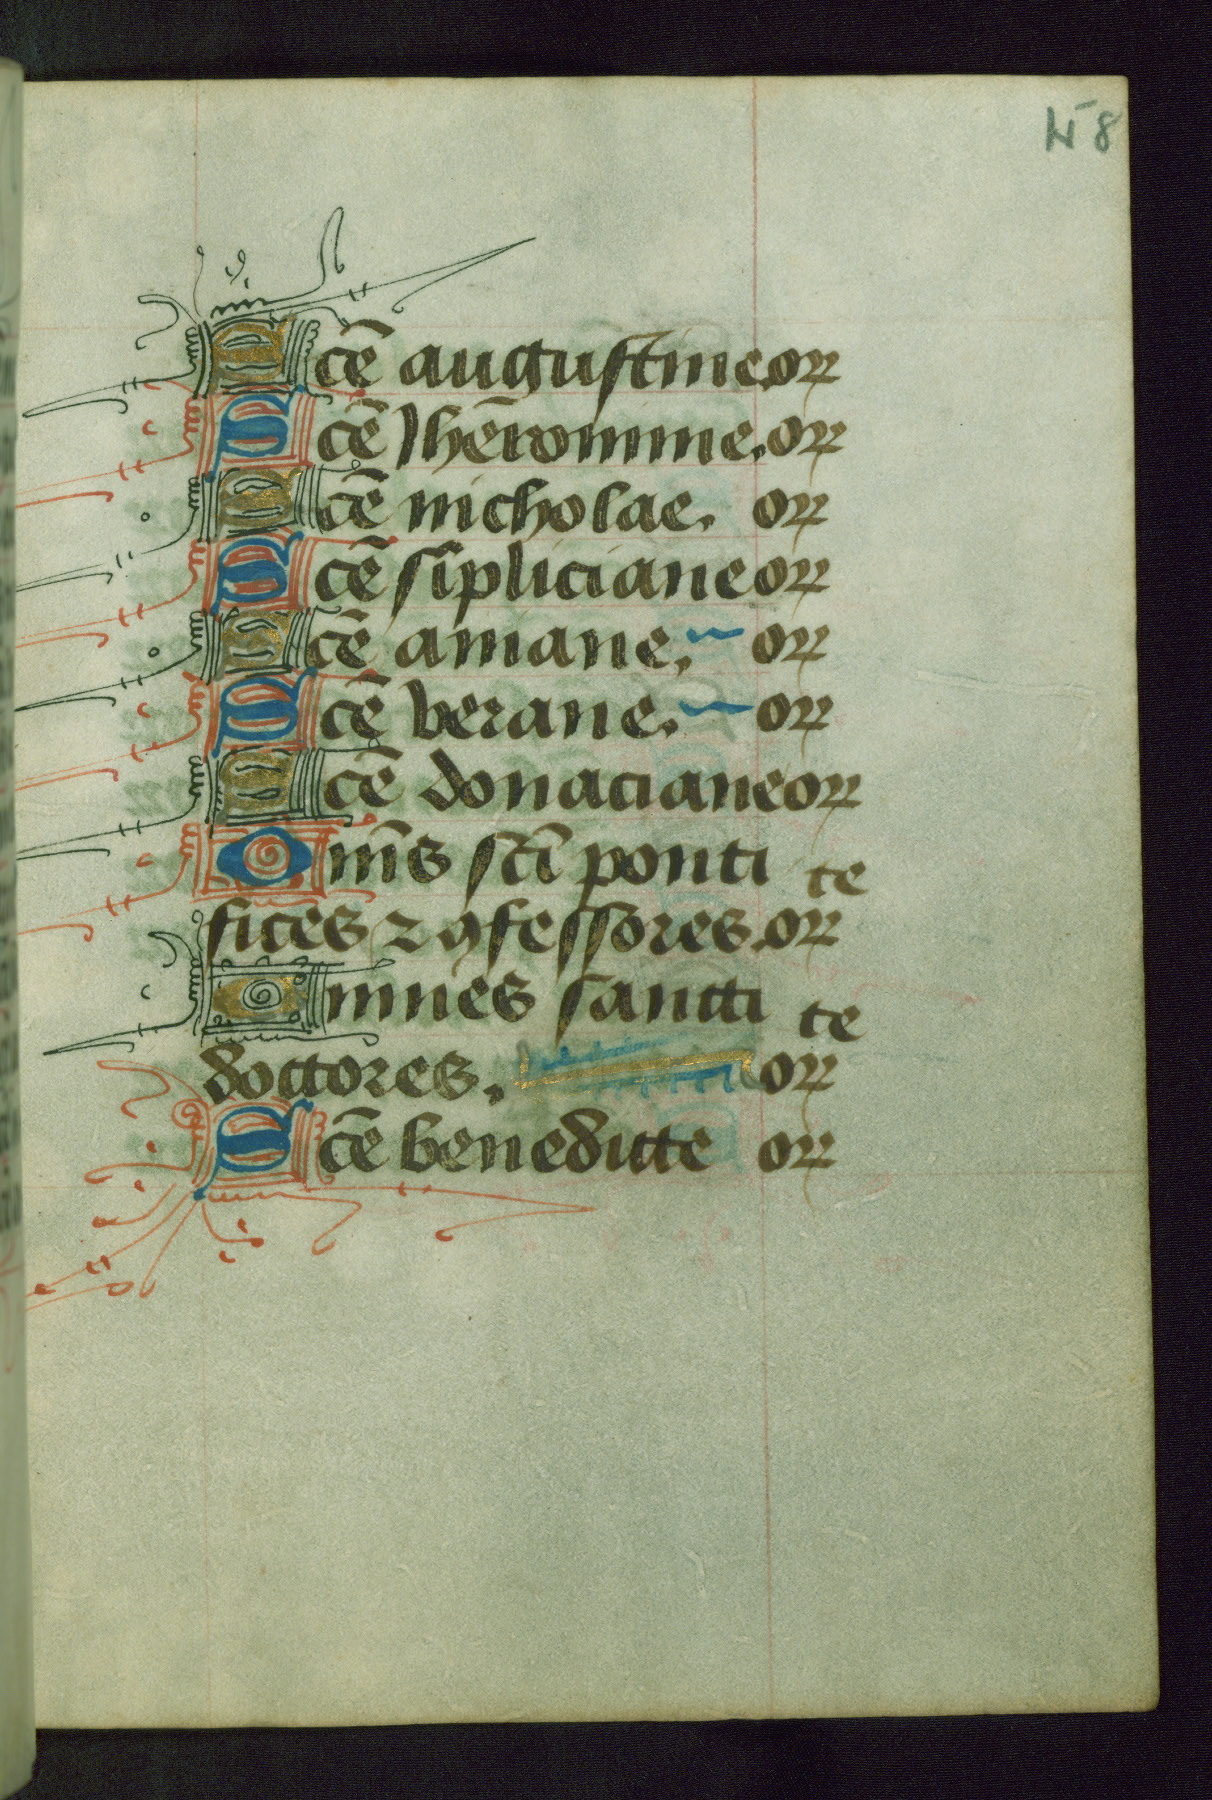 48
Scē augustine or
Scē Iherōnime. or
Scē nicholae. or
Scē sīpliciane or
Scē amane. or
Scē verane. or
Scē donaciane or
Omēs scī ponti te
fices ⁊ ꝯfessores. or
Omnes sancti te
doctores. or
Scē benedicte or